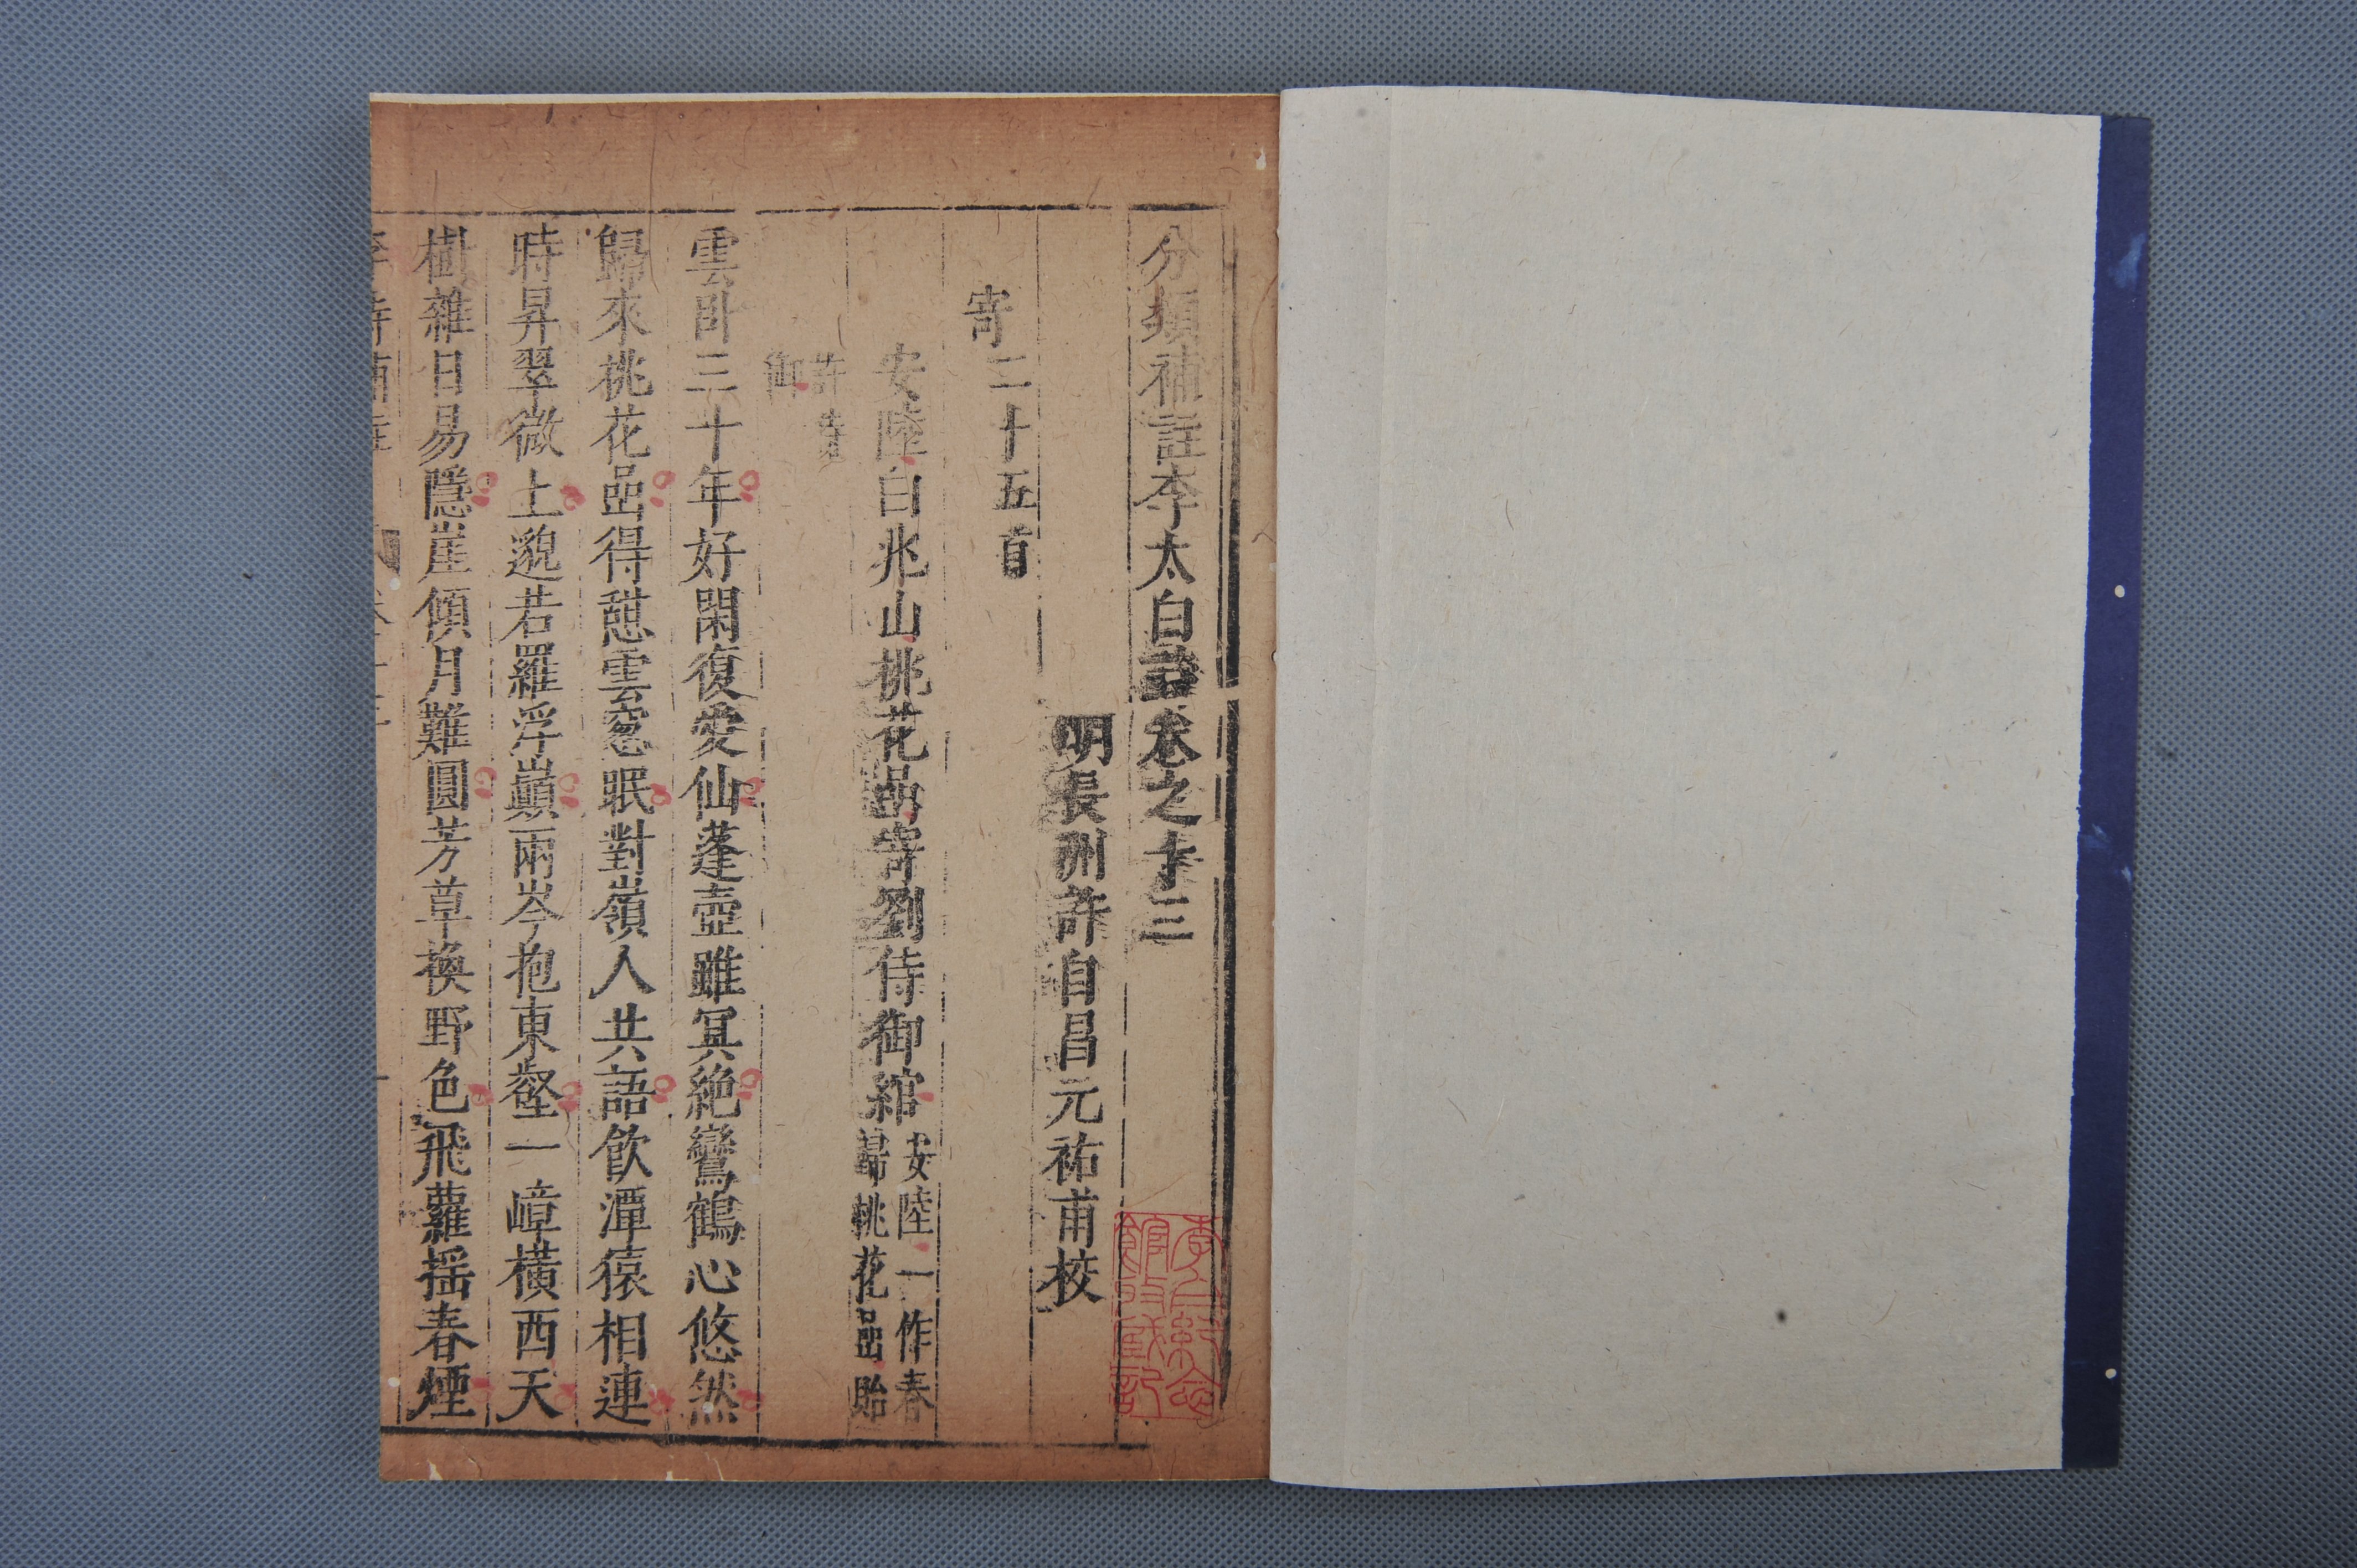 分類補註李太白詩卷之十三
明長洲許自昌元祐甫校
寄二十五首
安陸白兆山桃花巖寄劉侍御綰
安陸一作春
歸桃花嵒貽
許侍
御
雲卧三十年好閑復愛仙蓬壺雖冥絶鸞鶴心悠然
歸來桃花嵒得憩雲窓眠對嶺人共語飲潭猿相連
時昇翠微上邈若羅浮巔兩岑抱東壑一嶂橫西天
樹雜日易隱崖傾月難圓芳草換野色飛蘿揺春煙